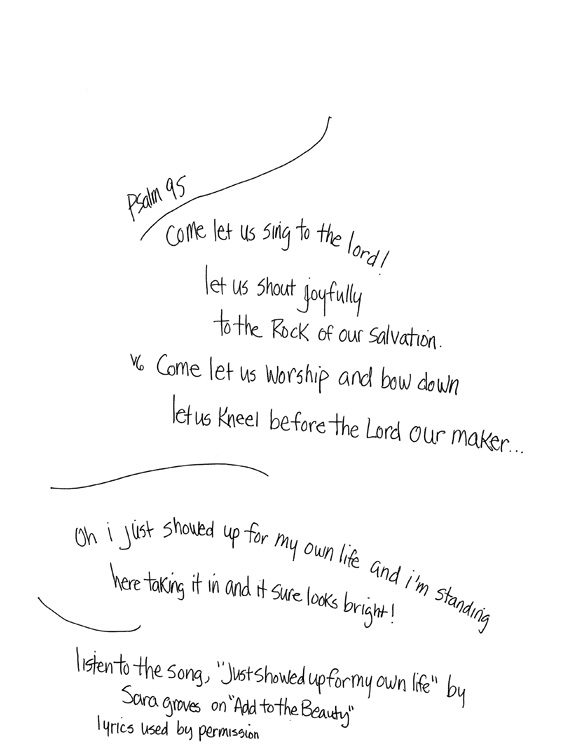 Psalm 95
Come let us sing to the lord!
let us shout joyfully
to the Rock of our salvation.
v6 Come let us worship and bow down
let us kneel before the Lord our maker...
Oh i just showed up for my own life and i'm standing
here taking it in and it sure looks bright!
listen to the song, "Just showed up for my own life" by
Sara groves on "Add to the Beauty"
lyrics used by permission